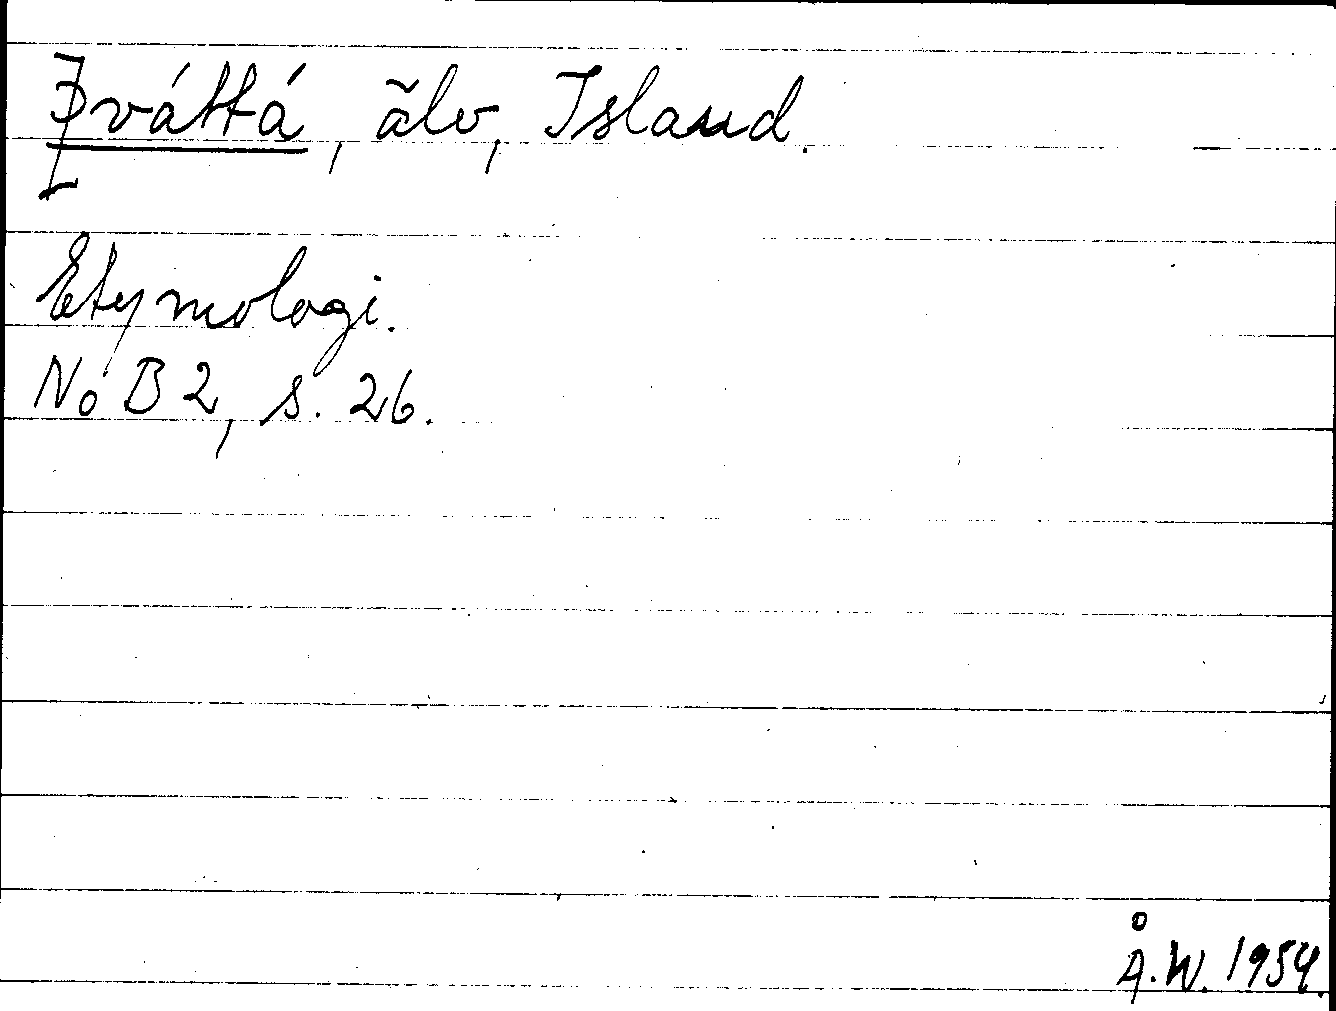 Þváttá, älv, Island.
Etymologi.
NoB 2, s. 26.
Å.W. 1954.